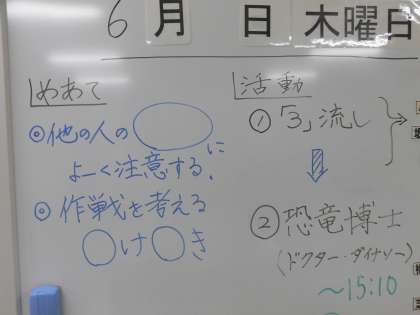 6月 日 木曜日
めあて
◎他の人の◯に
よーく注意する.
◎作戦を考える
◯け◯き
活動
①「3」流し
②恐竜博士
(ドクター・ダイナソー)
～15:10